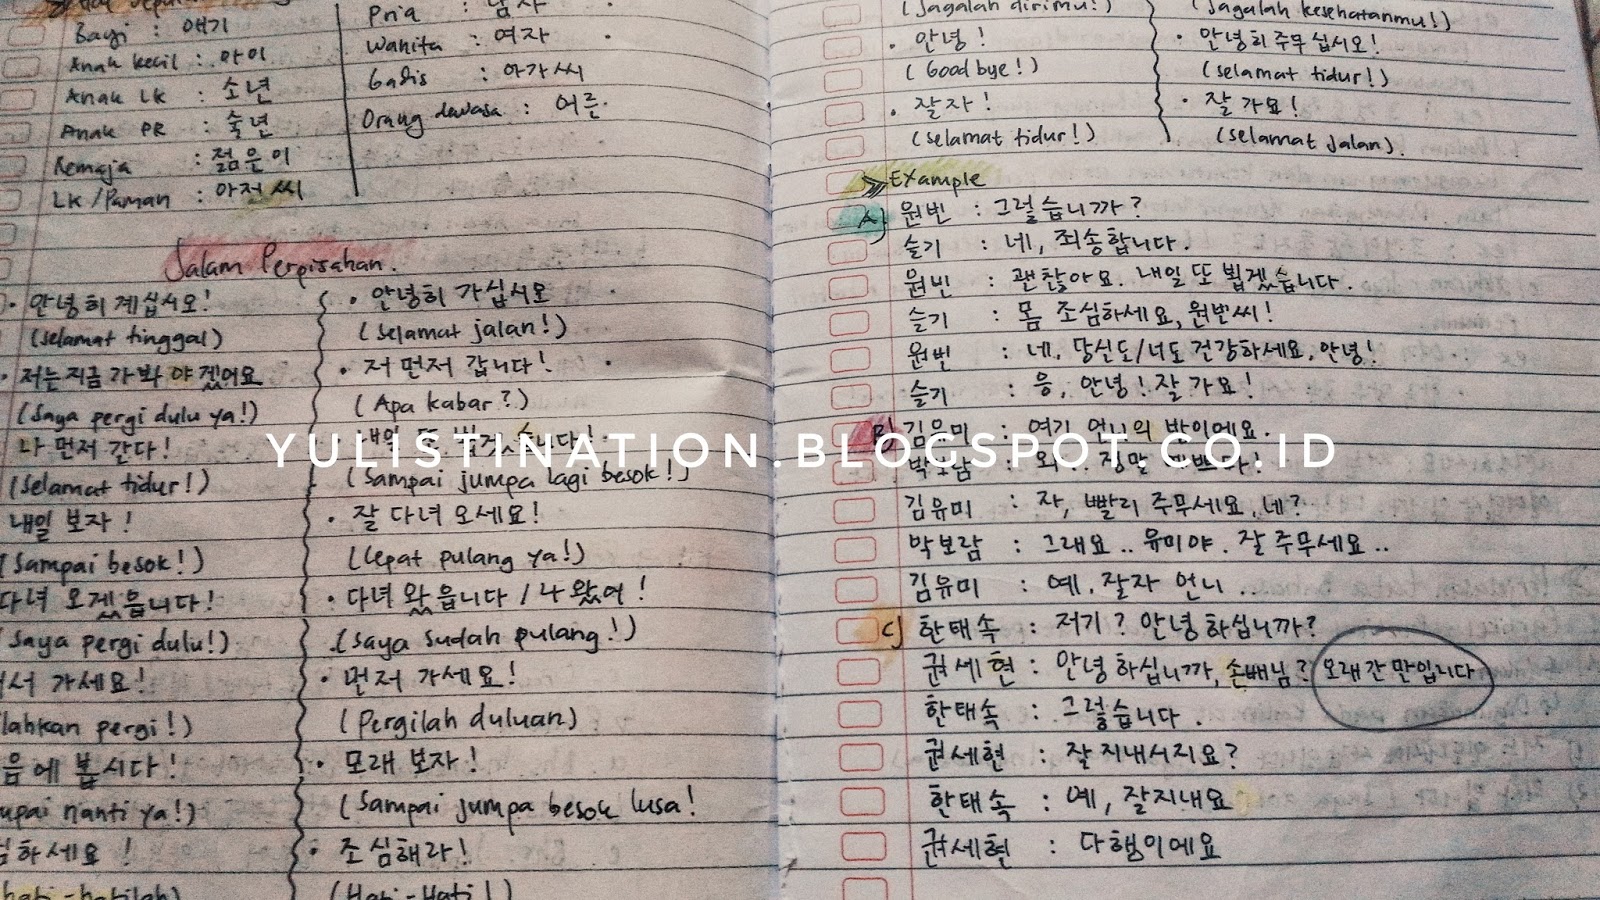 Bayi : 애기
Anak kecil : 아이
Anak LK : 소년
Anak PR : 숙년
Remaja : 젊은이
LK/Paman : 아저씨
Pria : 남자
Wanita : 여자
Gadis : 아가씨
Orang dewasa : 어른.
Salam Perpisahan.
• 안녕히 계십시오!
(selamat tinggal)
• 저는 지금 가봐야겠어요
(saya pergi dulu ya!)
나 먼저 간다!
(selamat tidur!)
내일 보자!
(sampai besok!)
다녀 오겠읍니다!
saya pergi dulu!)
서 가세요!
lahkan pergi!)
음에 봅시다!
upai nanti ya!)
하세요!
hati-hatilah)
• 안녕히 가십시오
(selamat jalan!)
• 저 먼저 갑니다!
(Apa kabar?)
(sampai jumpa lagi besok!)
• 잘 다녀 오세요!
(cepat pulang ya!)
• 다녀 왔읍니다 / 나 왔어!
(saya sudah pulang!)
• 먼저 가세요!
(Pergilah duluan)
• 모래 보자!
(sampai jumpa besok lusa!
• 조심해라!
(Hati-Hati!)
(Jagalah dirimu!)
• 안녕!
(Goodbye!)
• 잘자!
(selamat tidur!)
(Jagalah kesehatanmu!)
• 안녕히 주무십시오!
(selamat tidur!)
• 잘 가요!
(selamat jalan).
Example
A) 원빈 : 그렇습니까?
슬기 : 네, 죄송합니다.
원빈 : 괜찮아요. 내일 또 뵙겠습니다.
슬기 : 몸 조심하세요, 원빈씨!
원빈 : 네, 당신도/너도 건강하세요, 안녕!
슬기 : 응, 안녕! 잘 가요!
B) 김유미 : 여기 언니의 방이에요.
박보람 : 정말
김유미 : 자, 빨리 주무세요, 네?
박보람 : 그래요.. 유미야. 잘 주무세요..
김유미 : 예. 잘자 언니...
C) 한태속 : 저기? 안녕하십니까?
권세현 : 안녕하십니까, 손배님? 오래간만입니다
한태속 : 그렇습니다.
권세현 : 잘 지내시지요?
한태속 : 예, 잘지내요
권세현 : 다행이에요
YULISTINATION.BLOGSPOT.CO.ID